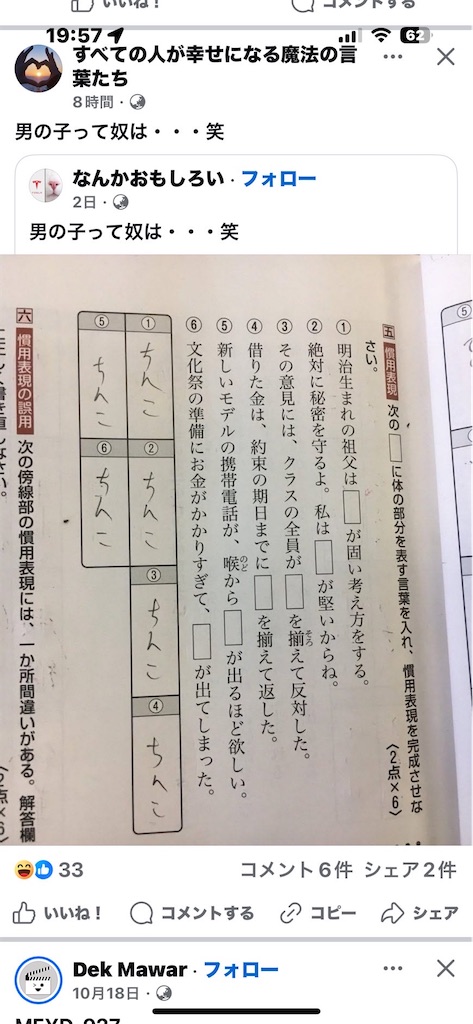 いいね！ コメントする
19:57 62
すべての人が幸せになる魔法の言
葉たち
8時間
男の子って奴は・・・笑
なんかおもしろい · フォロー
2日
男の子って奴は・・・笑
五 慣用表現 次の□に体の部分を表す言葉を入れ、慣用表現を完成させな
さい。 〈2点×6〉
① 明治生まれの祖父は□が固い考え方をする。
② 絶対に秘密を守るよ。私は□が堅いからね。
③ その意見には、クラスの全員が□を揃えて反対した。
そろ
④ 借りた金は、約束の期日までに□を揃えて返した。
⑤ 新しいモデルの携帯電話が、喉から□が出るほど欲しい。
のど
⑥ 文化祭の準備にお金がかかりすぎて、□が出てしまった。
① ちんこ
② ちんこ
③ ちんこ
④ ちんこ
⑤ ちんこ
⑥ ちんこ
六 慣用表現の誤用 次の傍線部の慣用表現には、一か所間違いがある。解答欄
に正しく書き直しなさい。 〈2点×6〉
⑤
33 コメント6件 シェア2件
いいね！ コメントする コピー シェア
Dek Mawar · フォロー
10月18日